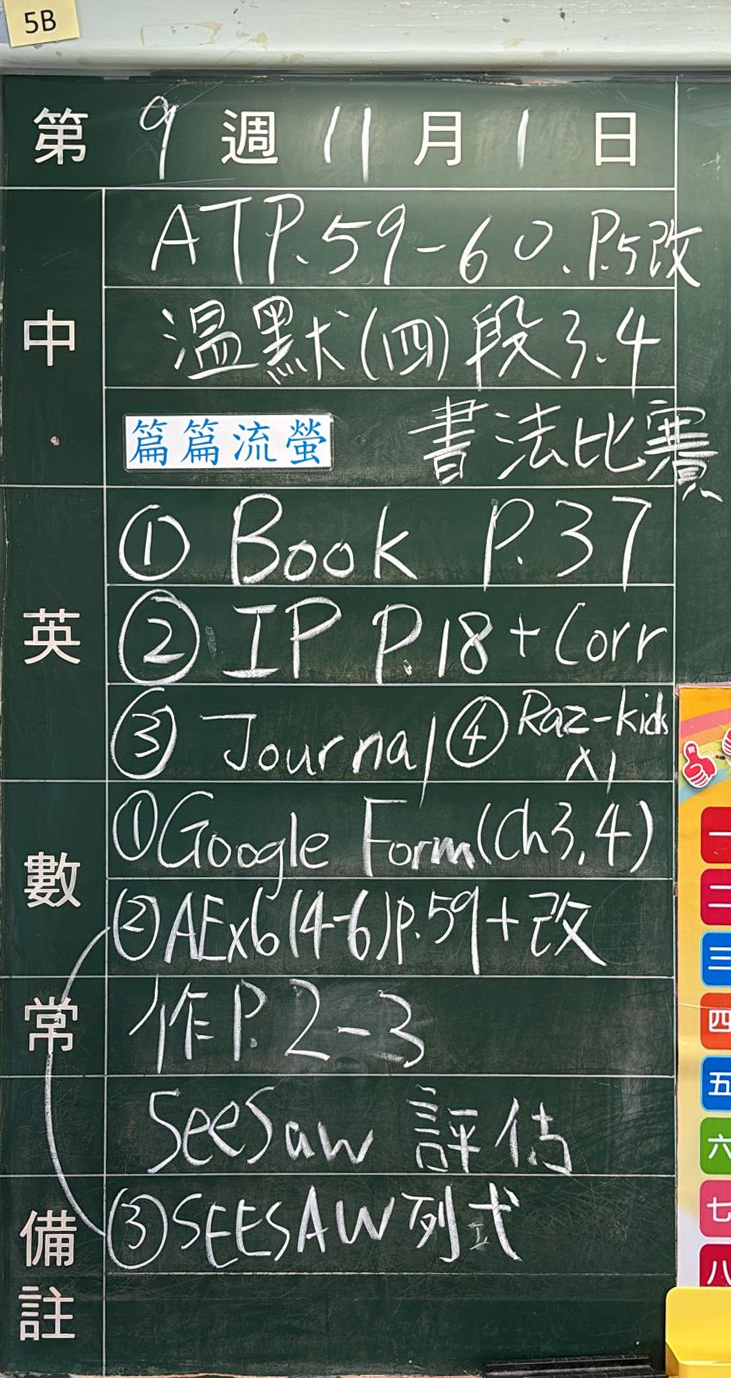 5B
第 9 週 11 月 1 日
中
ATP.59-60.P.5改
溫默(四)段3.4
篇篇流螢 書法比賽
英
① Book P.37
② IP P.18+Corr
③ Journal ④ Raz-kids X1
數
①Google Form(Ch3,4)
②AEx6(4-6)P.59+改
常
作P.2-3
SeeSaw 評估
備註
③SEESAW列式
一
二
三
四
五
六
七
八